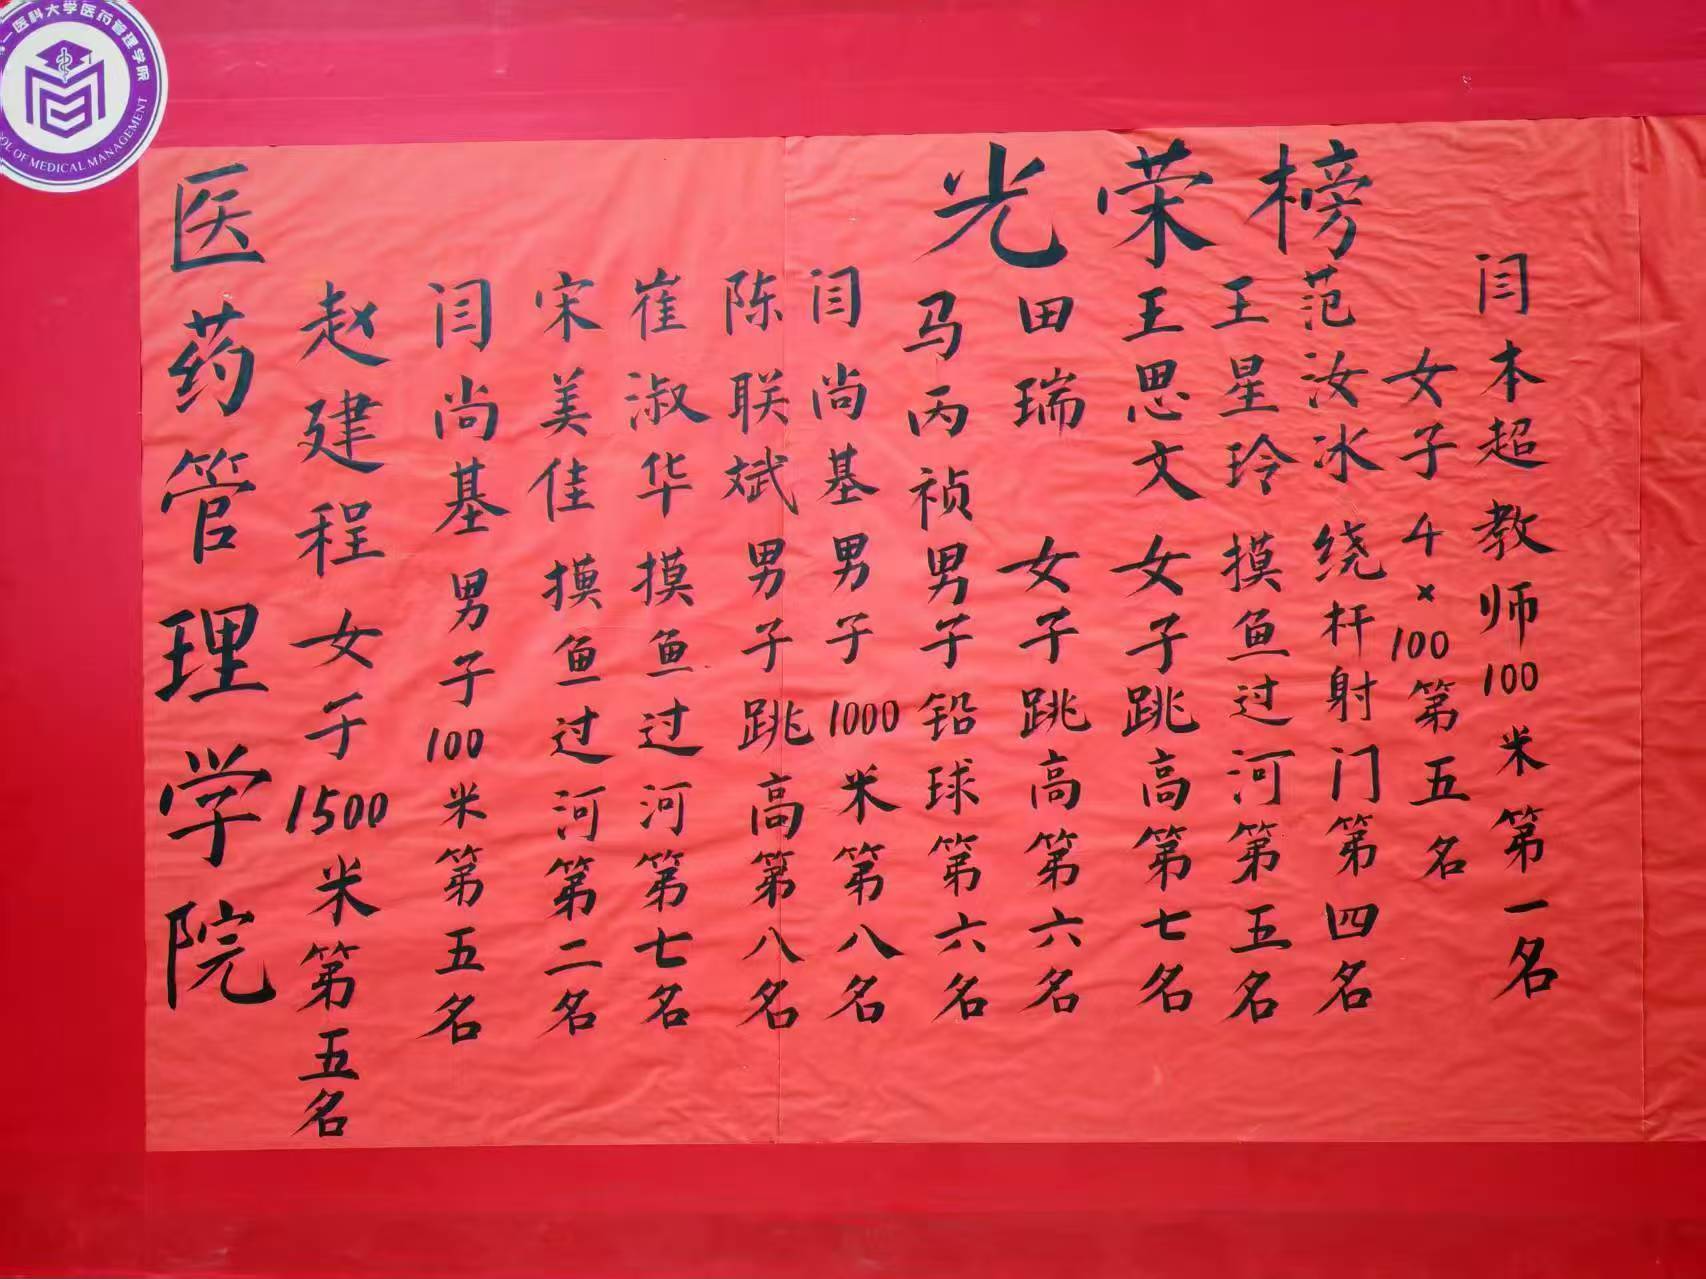 一医科大学医药管理学院
OL OF MEDICAL MANAGEMENT
光荣榜
闫本超教师100米第一名
女子4×100第五名
范汝冰绕杆射门第四名
王星玲摸鱼过河第五名
王思文女子跳高第七名
田瑞女子跳高第六名
马丙祯男子铅球第六名
闫尚基男子1000米第八名
陈联斌男子跳高第八名
崔淑华摸鱼过河第七名
宋美佳摸鱼过河第二名
闫尚基男子100米第五名
赵建程女子1500米第五名
医药管理学院